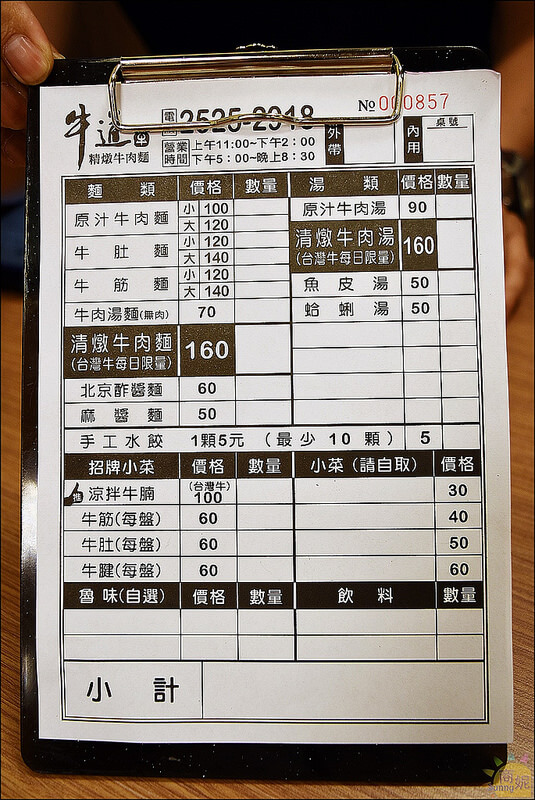 牛道 電話 2525-2918 外帶 內用 桌號
№ 000857
精燉牛肉麵 營業時間 上午11:00~下午2:00
下午5:00~晚上8:30
麵類 價格 數量 湯類 價格 數量
原汁牛肉麵 小 100 原汁牛肉湯 90
大 120
清燉牛肉湯 (台灣牛每日限量) 160
牛肚麵 小 120
大 140
牛筋麵 小 120 魚皮湯 50
大 140
牛肉湯麵(無肉) 70 蛤蜊湯 50
清燉牛肉麵 (台灣牛每日限量) 160
北京酢醬麵 60
麻醬麵 50
手工水餃 1顆5元 (最少10顆) 5
招牌小菜 價格 數量 小菜(請自取) 價格
推 涼拌牛腩 (台灣牛) 100 30
牛筋(每盤) 60 40
牛肚(每盤) 60 50
牛腱(每盤) 60 60
魯味(自選) 價格 數量 飲料 數量
小計